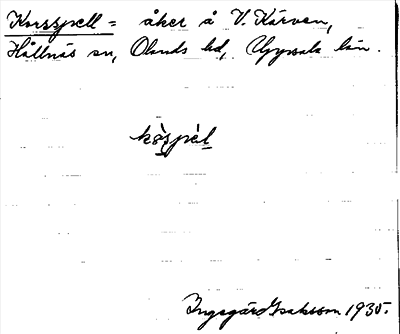 Korsspell = åker å V. Kärven,
Hållnäs sn, Olands hd, Uppsala län.
kòspèl
Ingegärd Isaksson 1935.